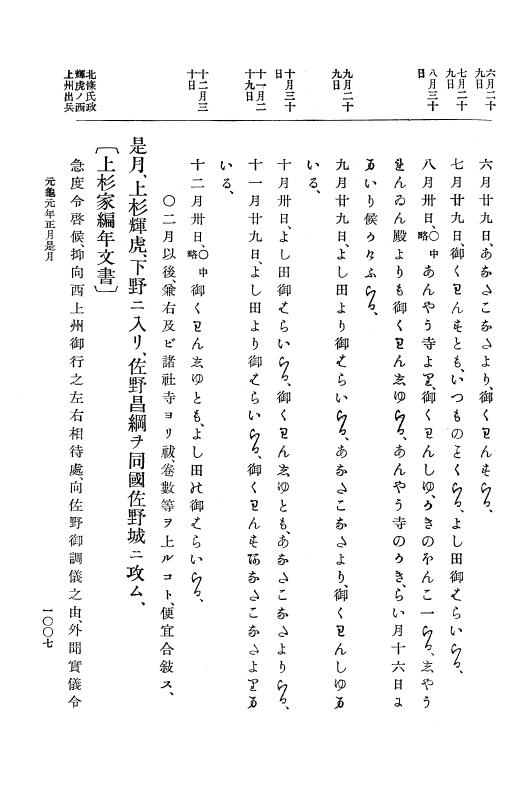 六月二十九日
七月二十九日
八月三十日
九月二十九日
十月三十日
十一月二十九日
十二月三十日
北條氏政輝虎ノ西上州出兵
六月廿九日、あなさこなさより、御くわんも
七月廿九日、御くわんもとも、いつものよし田御
八月卅日、○中略あんやう寺より、御くわんしゆ、うきのをんこ一
殿よりも御くわんしゆ、あんやう寺のうき、らい月十六日
いり候
九月廿九日、よし田より御はらい、あなさこなさより、御くわんしゆ
いる、
十月卅日、よし田御はらい、御くわんしゆとも、あなさこなさより
十一月廿九日、よし田より御はらい、御くわんもあなさこなさより
いる、
十二月卅日、○中略御くわんしゆとも、よし田の御はらい
○二月以後、兼右及ビ諸社寺ヨリ祓、卷數等ヲ上ルコト、便宜合敍ス、
是月、上杉輝虎、下野ニ入リ、佐野昌綱ヲ同國佐野城ニ攻ム、
〔上杉家編年文書〕
急度令啓候、抑向西上州御行之左右相待處、向佐野御調儀之由、外聞實儀令
元龜元年正月是月
一〇〇七